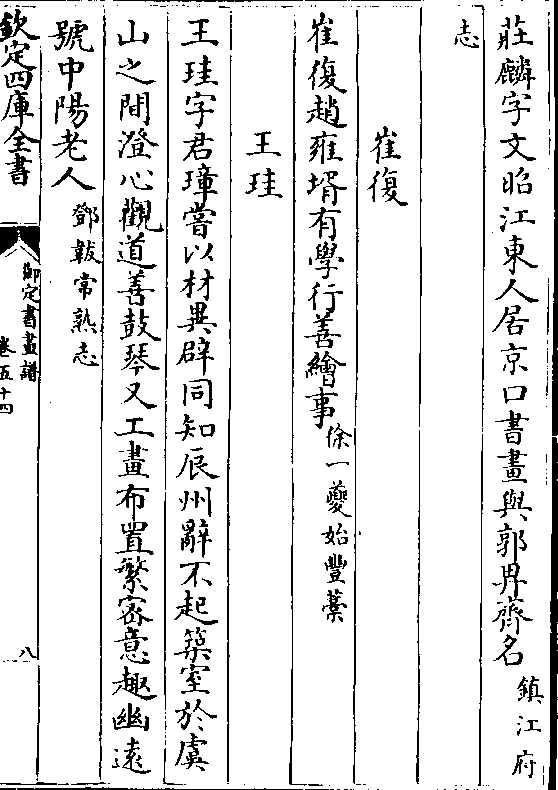 莊麟字文昭江東人居京口書畫與郭畀齊名鎮江府
志
崔復
崔復趙雍壻有學行善繪事徐一夔始豐藁
王珪
王珪字君璋嘗以材異辟同知辰州辭不起築室於虞
山之間澄心觀道善鼓琴又工畫布置繁密意趣幽遠
號中陽老人鄧韍常熟志
欽定四庫全書
御定書畫譜
卷五十四
八